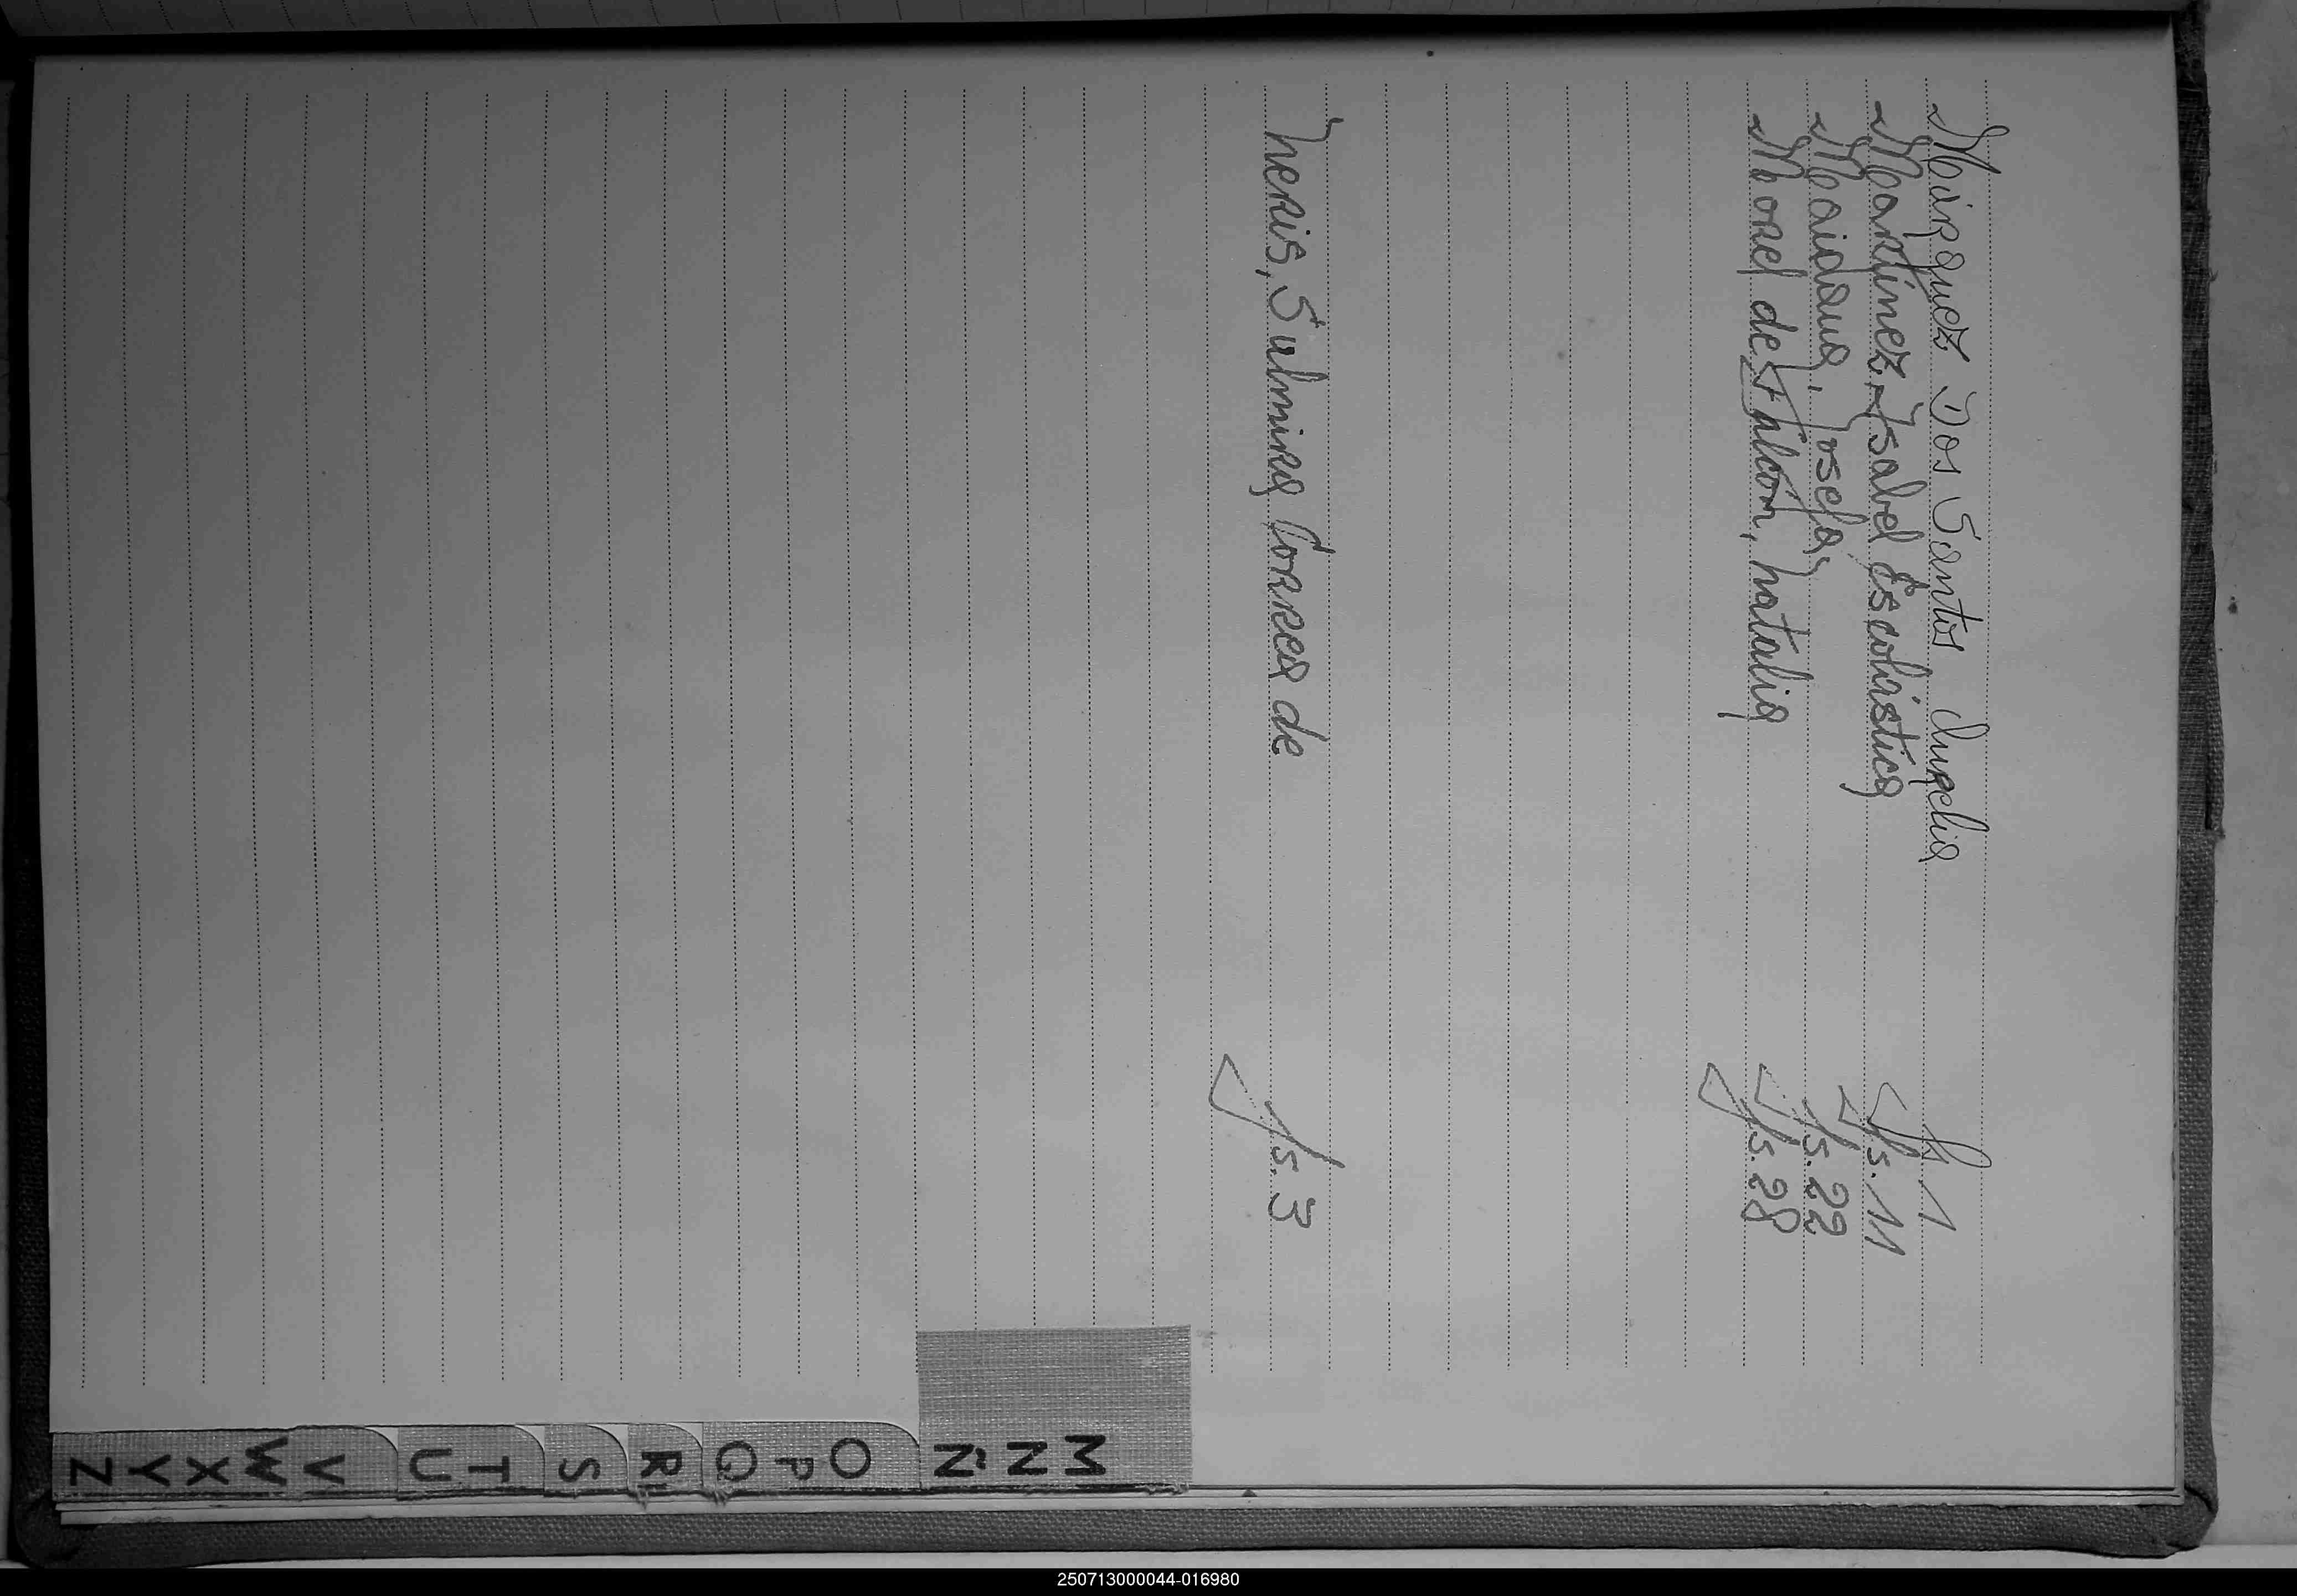 Márquez Dos Santos Aurelia fs 1
Martínez, Isabel Escolástica fs. 11
Maidana, Josefa fs. 22
Morel de Falcón, Natalia fs. 28
Neris, Sulmira Correa de fs. 3
M
N
Ñ
O
P
Q
R
S
T
U
V
W
X
Y
Z
250713000044-016980